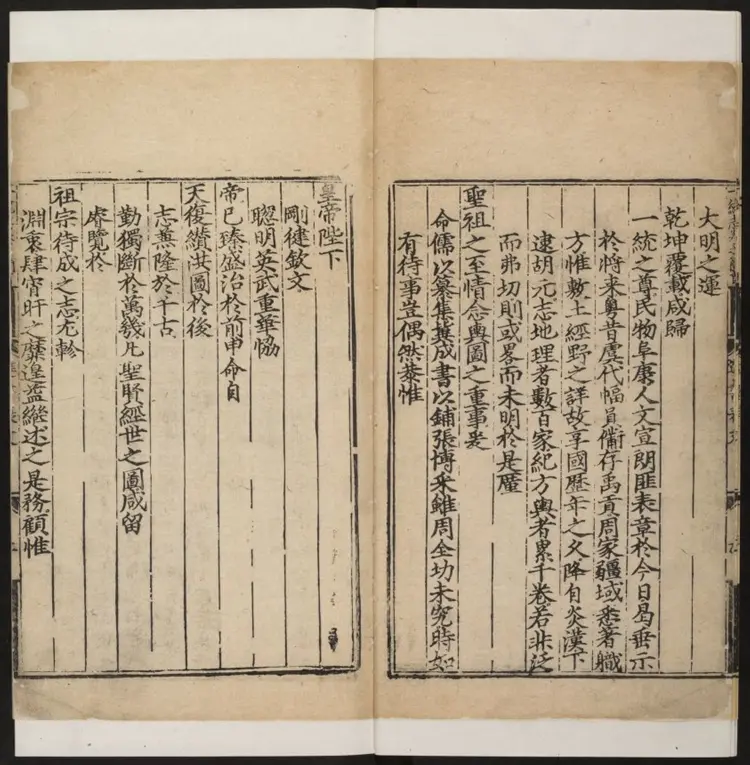 大明之運
乾坤覆載咸歸
一統之尊民物阜康人文宣朗匪表章於今日曷垂示
於将来粤昔虞代幅員僃存禹貢周家疆域悉著職
方惟敷土經野之詳故享國歴年之久降自炎漢下
逮胡元志地理者數百家紀方輿者累千卷若非泛
而弗切則或畧而未明於是廑
聖祖之至情念輿圖之重事爰
命儒以纂集兾成書以鋪張博采雖周全功未究時如
有待事豈偶然恭惟
皇帝陛下
剛健欽文
聦明英武重華恊
帝已臻盛治於前申命自
天復纘洪圖於後
志隆於千古
勤獨斷於萬幾凡聖賢經世之圖咸留
睿覽於
祖宗待成之志尤軫
淵衷肆宵旰之靡遑葢繼述之是務顧惟